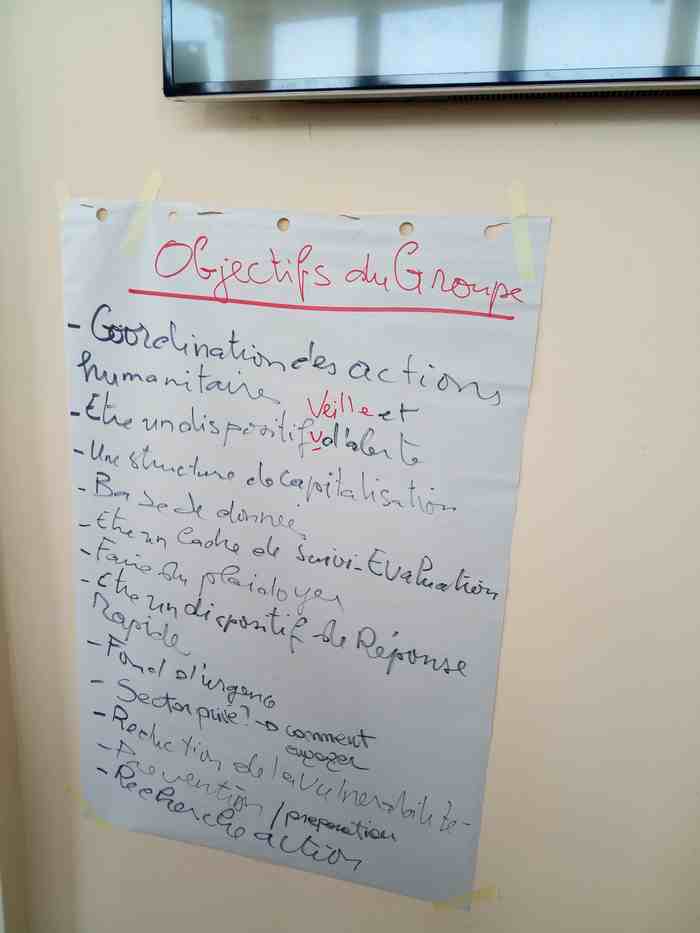 Objectifs du Groupe
- Coordination des actions
humanitaires
Veille et
- Etre un dispositif d'alerte
- Une structure de capitalisation
- Base de données
- Etre un Cadre de Suivi-Evaluation
- Faire du plaidoyer
- Etre un dispositif de Réponse
Rapide
- Fond d'urgence
- Sector privé? → comment
engager
- Reduction de la vulnerabilité -
- Prevention / preparation
- Recherche action